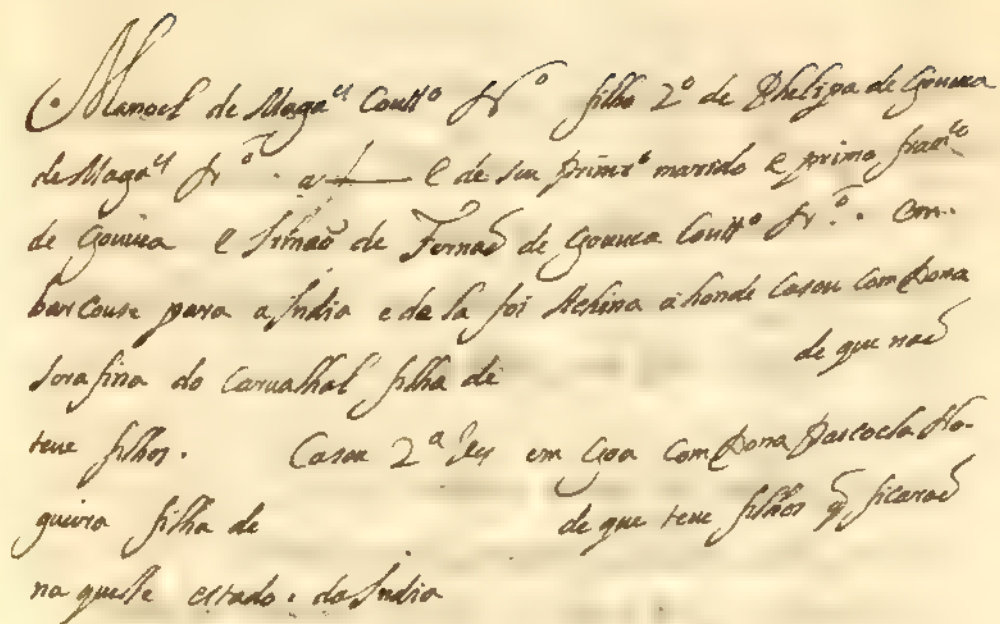 Manoel de Magaˡˢ Couttº frº filho 2º de Phelipa de Gouuea
de Magaˡˢ frº . a e de seu primrº marido e primo franᶜº
de Gouuea e Irmaõ de Fernaõ de Gouuea Couttº frº. Em-
barcouse para a India e de la foi Achina a honde Casou Com Dona
Serafina do Caruallhal filha de de que naõ
teue filhos. Casou 2ª ves em Goa Com Dona Pascoela No-
gueira filha de de que teue filhos q̃ ficaraõ
na quelle estado. da India